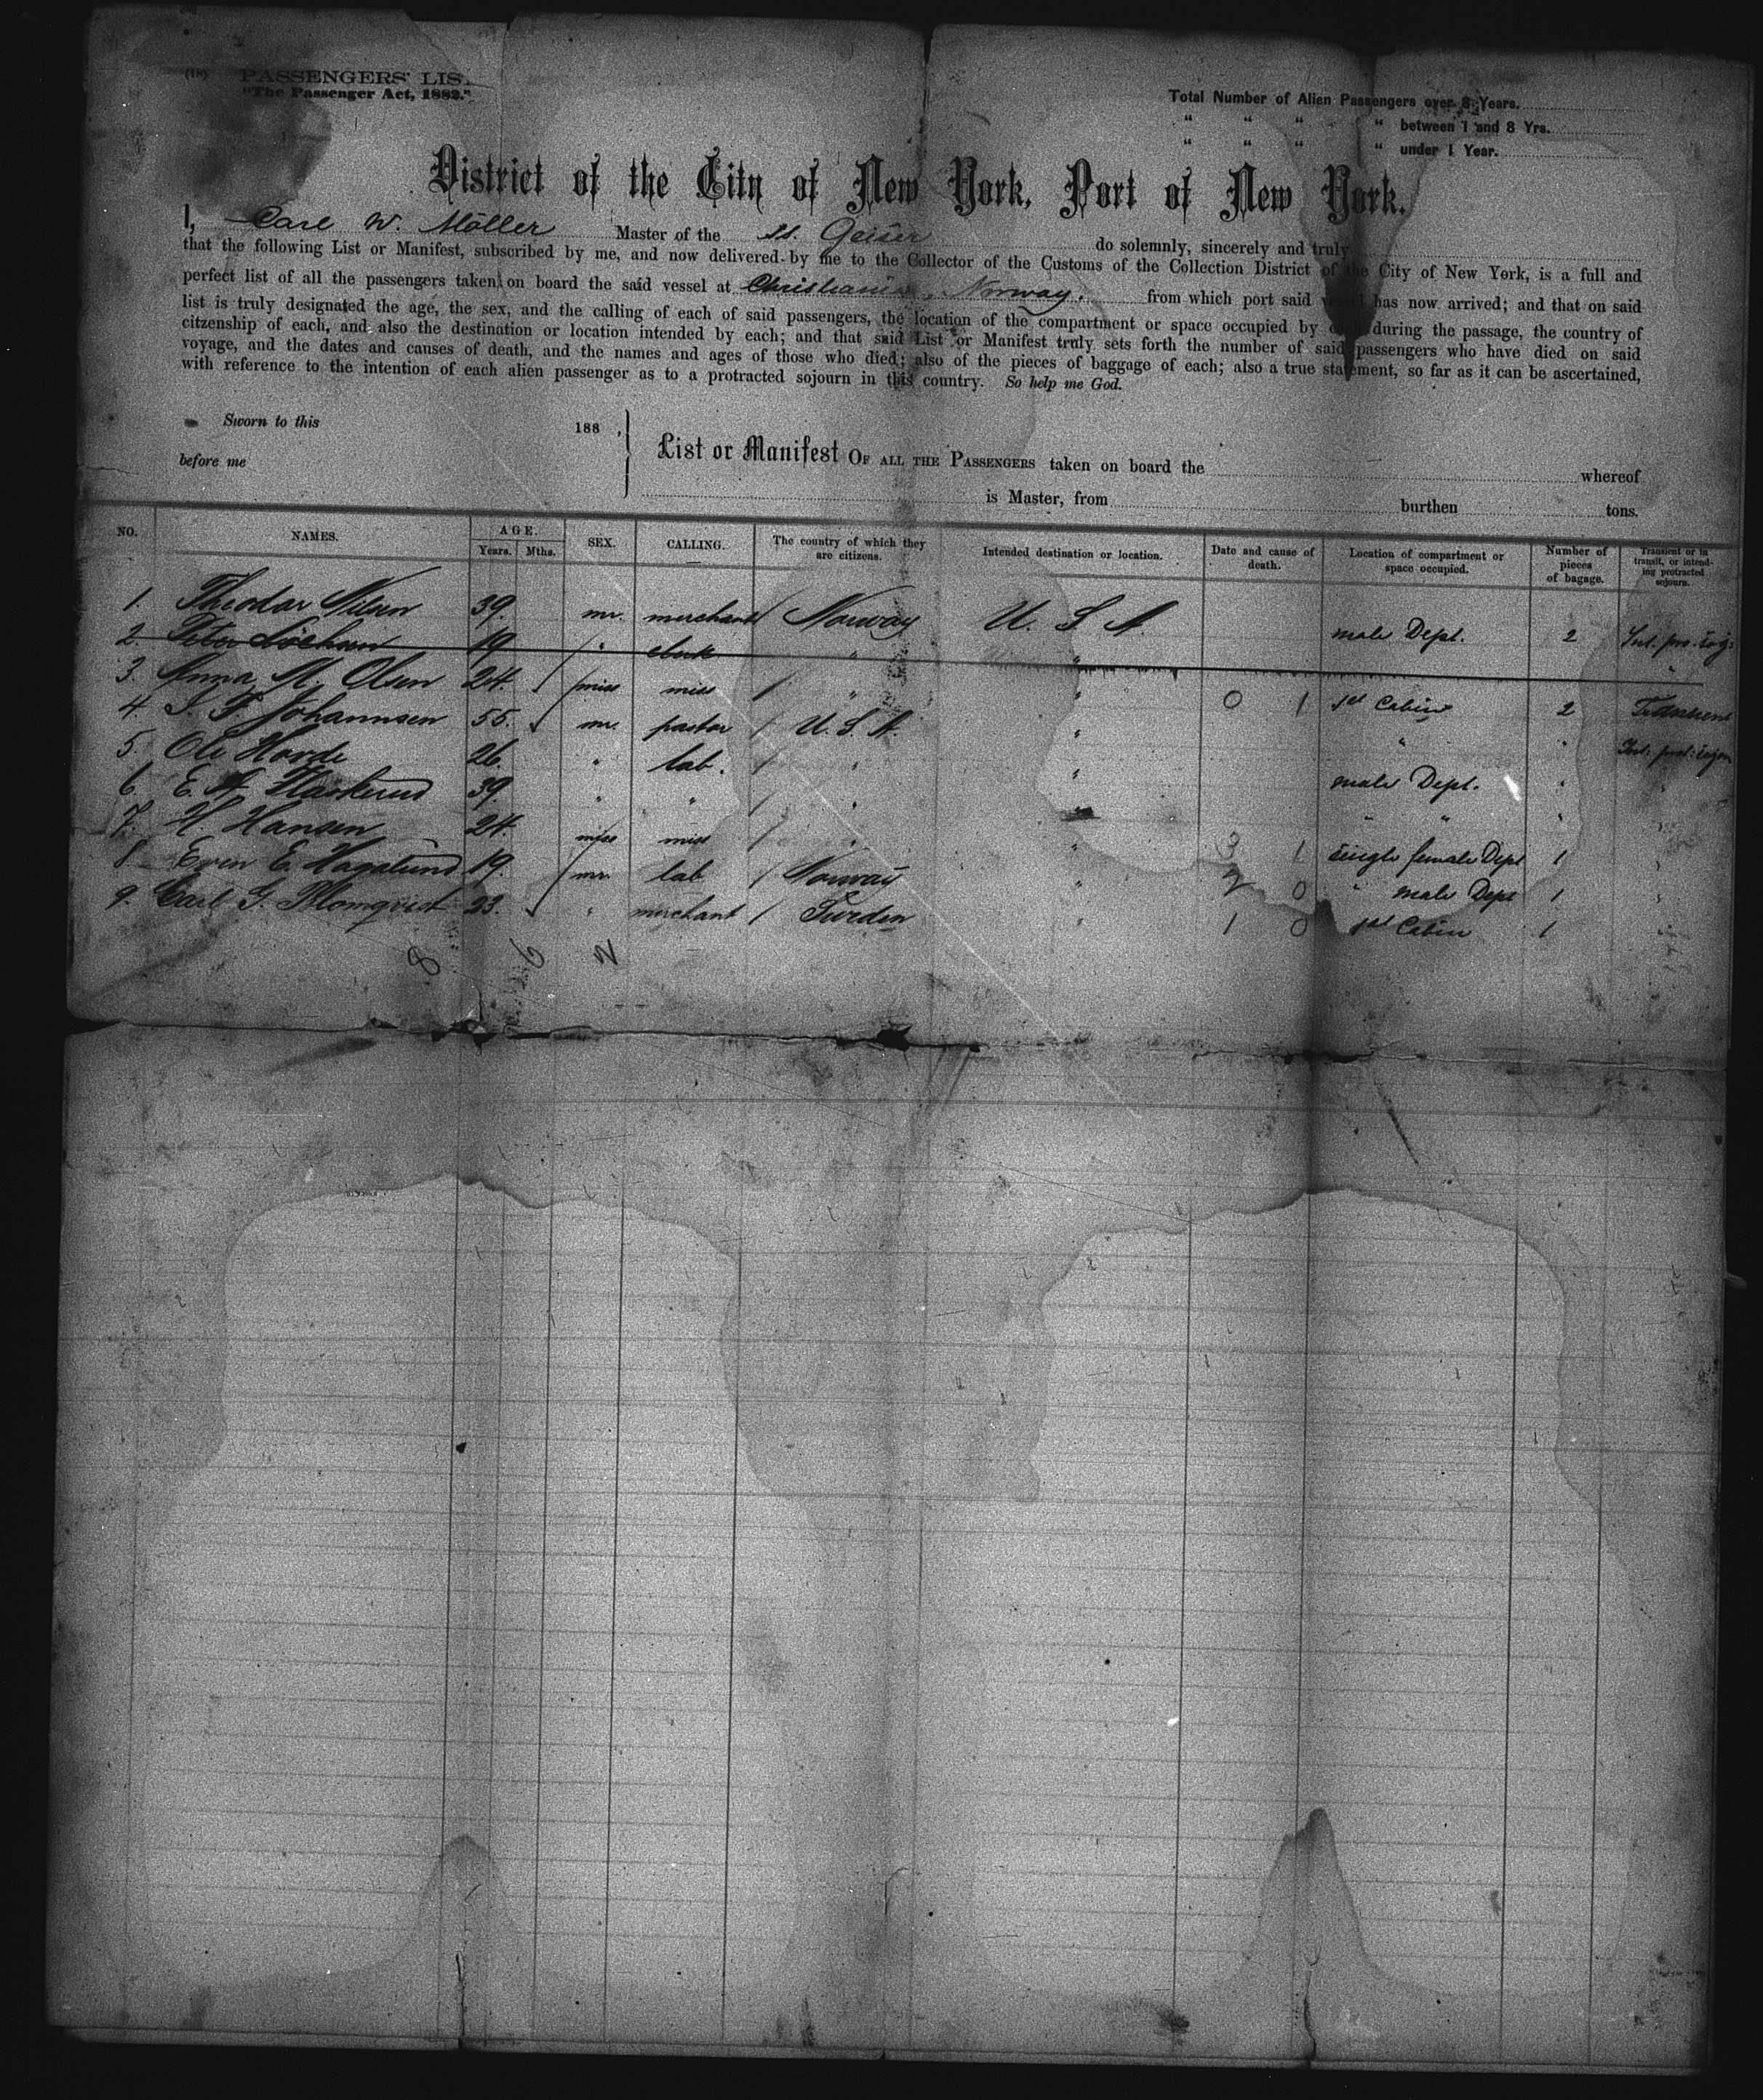 (18) PASSENGERS' LIS
"The Passenger Act, 1882."
Total Number of Alien Passengers over 8 Years.
" " " " between 1 and 8 Yrs.
" " " " under 1 Year.
District of the City of New York, Port of New York.
I, Carl W. Möller Master of the SS. Geiser do solemnly, sincerely and truly
that the following List or Manifest, subscribed by me, and now delivered by me to the Collector of the Customs of the Collection District of the City of New York, is a full and
perfect list of all the passengers taken on board the said vessel at Christiania, Norway. from which port said has now arrived; and that on said
list is truly designated the age, the sex, and the calling of each of said passengers, the location of the compartment or space occupied by during the passage, the country of
citzenship of each, and also the destination or location intended by each; and that said List or Manifest truly sets forth the number of said passengers who have died on said
voyage, and the dates and causes of death, and the names and ages of those who died; also of the pieces of baggage of each; also a true statement, so far as it can be ascertained,
with reference to the intention of each alien passenger as to a protracted sojourn in this country. So help me God.
Sworn to this 188 ,
before me
List or Manifest OF ALL THE PASSENGERS taken on board the whereof
is Master, from burthen tons.
NO. NAMES. AGE. Years. Mths. SEX. CALLING. The country of which they are citizens. Intended destination or location. Date and cause of death. Location of compartment or space occupied. Number of pieces of bagage. Transient or in transit, or intending protracted sojourn.
1. Theodor Nilsen 39. mr. merchant Norway U. S. A. male Dept. 2
2. 19 " clerk " "
3. Anna M. Olsen 24. miss miss " " 0 1 1st Cabin 2
4. J. F. Johannsen 55. mr. pastor U. S. A. " " "
5. Ole Hovde 26. " lab. " " male Dept. " "
6. E. 39. " " " " " " "
7. H. Hansen 24. miss miss " " 3 1 Single female Dept 1 "
8. Even E. Hagalund 19. mr. lab Norway " 2 0 " male Dept 1 "
9. Carl G. Blomqvist 23. " merchant Sweden " 1 0 1st Cabin 1 "
8 6 2